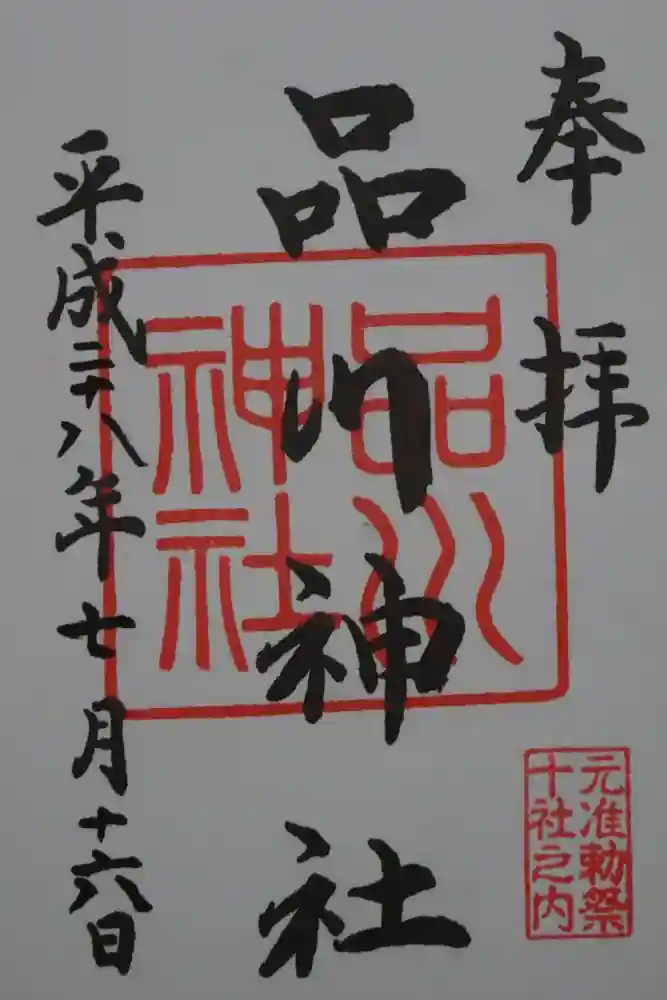 奉拝
品川神社
品川
神社
元准勅祭
十社之内
平成二十八年七月十六日